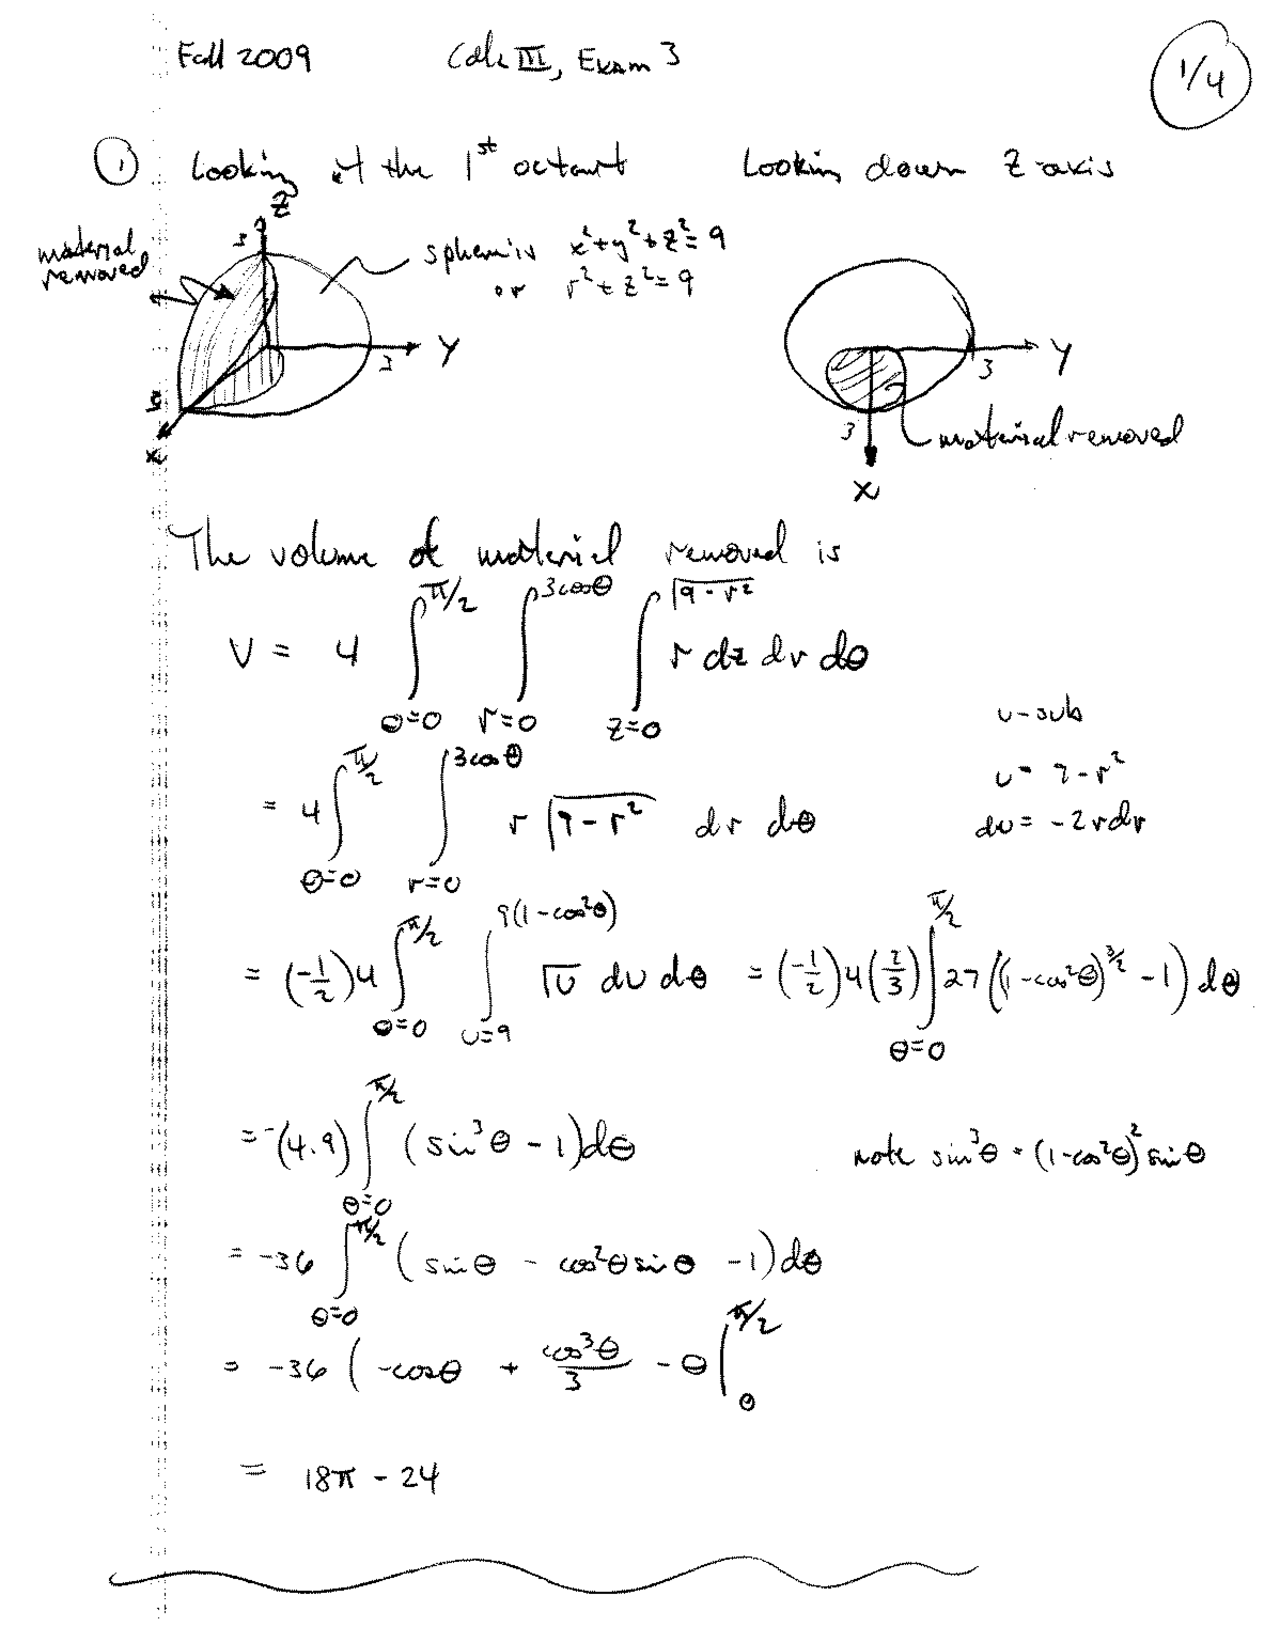 Fall 2009 Calc III, Exam 3 1/4
① Looking at the 1st octant Looking down Z-axis
material removed
Z
3
sphere is x²+y²+z²=9
or r²+z²=9
Y
3
x
Y
3
3
X
material removed
The volume of material removed is
V = 4 ∫_{θ=0}^{π/2} ∫_{r=0}^{3cosθ} ∫_{z=0}^{√(9-r²)} r dz dr dθ
u-sub
= 4 ∫_{θ=0}^{π/2} ∫_{r=0}^{3cosθ} r √(9-r²) dr dθ
u = 9-r²
du = -2rdr
= (-1/2)4 ∫_{θ=0}^{π/2} ∫_{u=9}^{9(1-cos²θ)} √u du dθ = (-1/2)4(2/3) ∫_{θ=0}^{π/2} 27((1-cos²θ)^{3/2} - 1) dθ
= -(4·9) ∫_{θ=0}^{π/2} (sin³θ - 1)dθ note sin³θ = (1-cos²θ)² sinθ
= -36 ∫_{θ=0}^{π/2} (sinθ - cos²θ sinθ - 1)dθ
= -36 ( -cosθ + cos³θ/3 - θ |_0^{π/2}
= 18π - 24